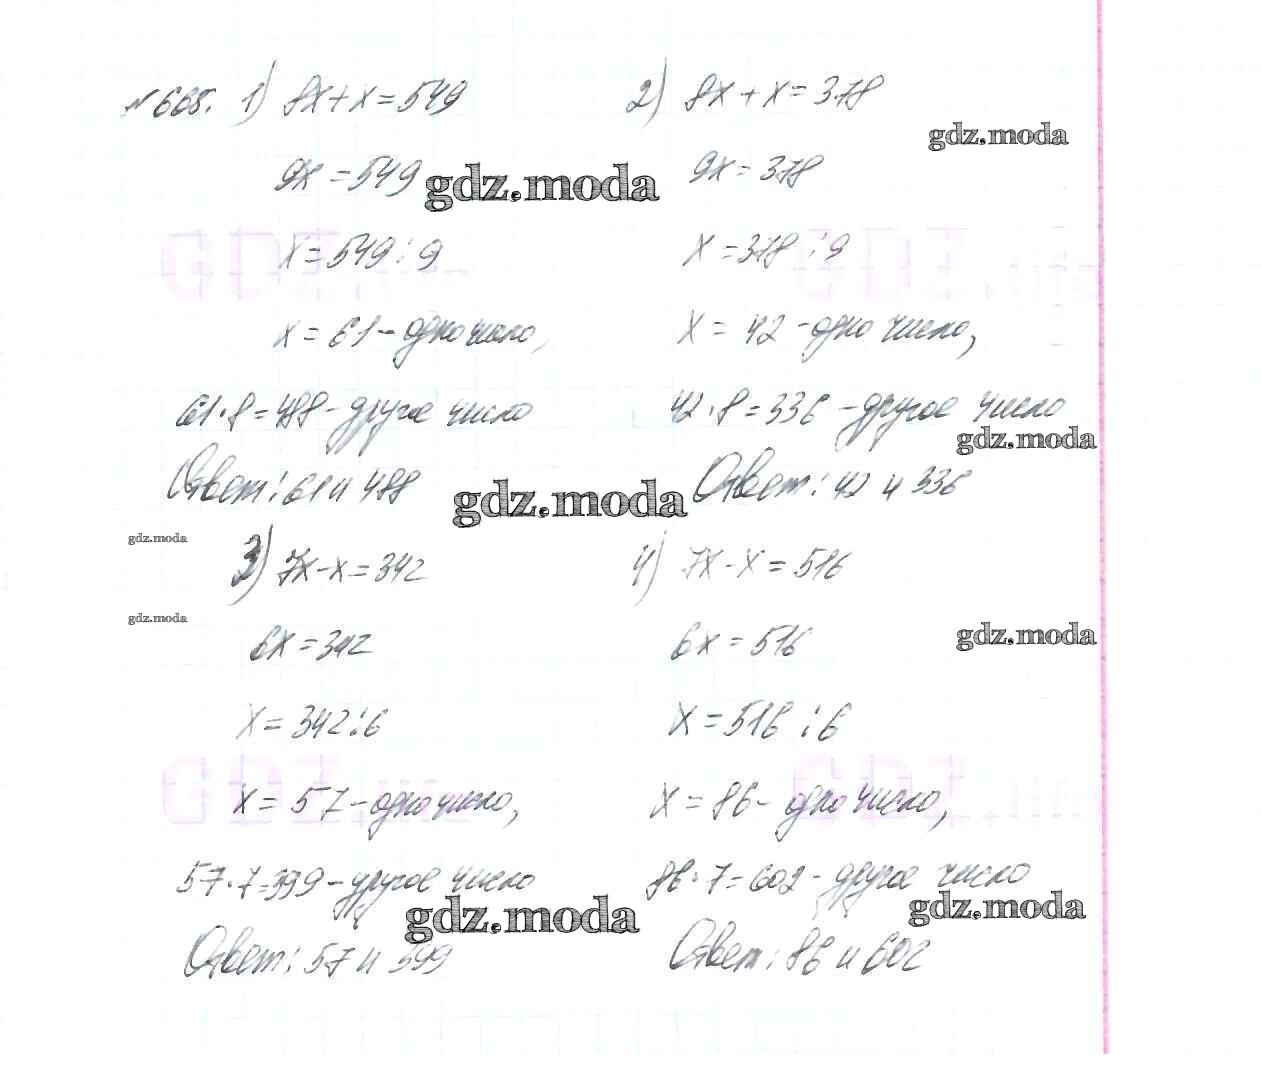 №668. 1) 8x+x=549
9x=549
x=549:9
x=61-одно число,
61·8=488-другое число
Ответ: 61 и 488
2) 8x+x=378
9x=378
x=378:9
x=42-одно число,
42·8=336-другое число
Ответ: 42 и 336
3) 7x-x=342
6x=342
x=342:6
x=57-одно число,
57·7=399-другое число
Ответ: 57 и 399
4) 7x-x=516
6x=516
x=516:6
x=86-одно число,
86·7=602-другое число
Ответ: 86 и 602
gdz.moda
gdz.moda
gdz.moda
gdz.moda
gdz.moda
gdz.moda
gdz.moda
gdz.moda
gdz.moda